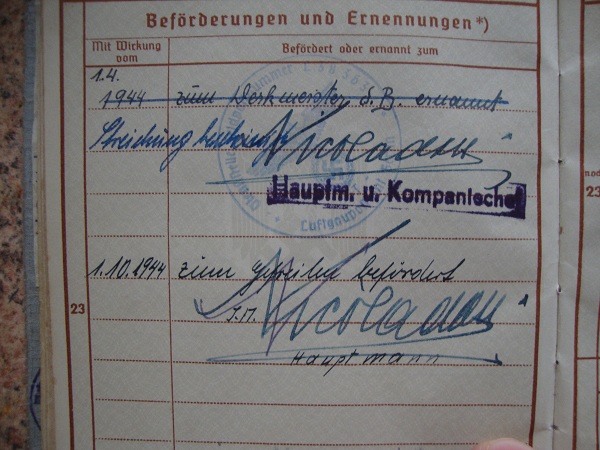 Beförderungen und Ernennungen*)
Mit Wirkung vom
Befördert oder ernannt zum
1.4.
1944 zum Werkmeister d. B. ernannt
Streichung
Nicoladoni
Hauptm. u. Kompaniechef
1.10.1944 zum Gefreiten befördert
23
Nicoladoni
Hauptmann
23